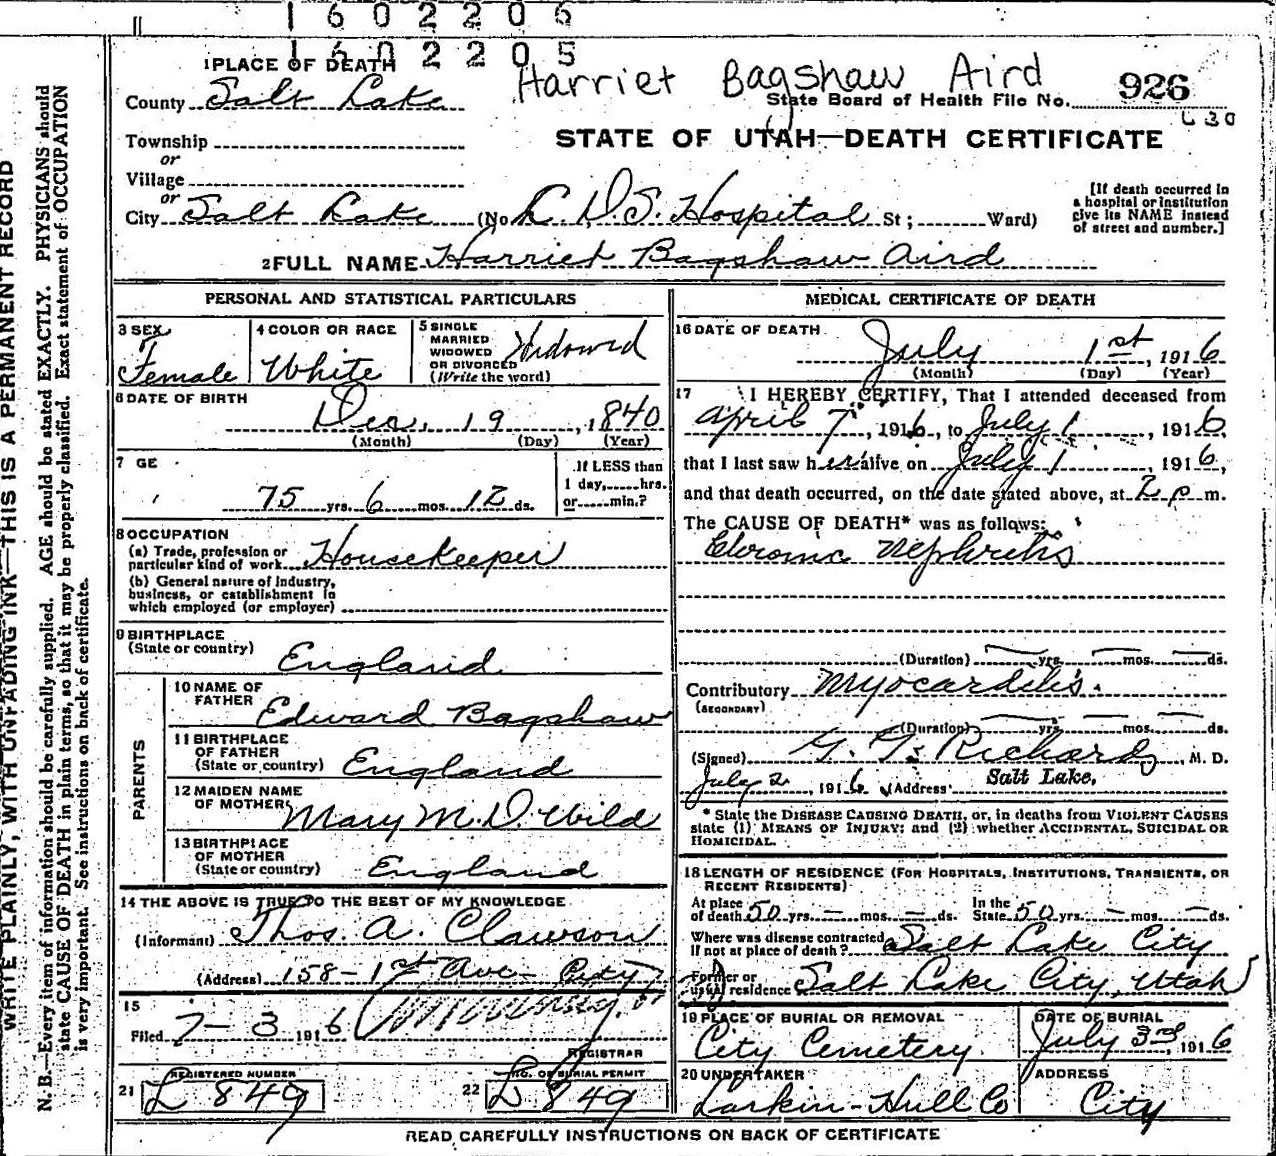 1602205
1602205
Harriet Bagshaw Aird
1 PLACE OF DEATH
County Salt Lake
State Board of Health File No. 926
630
Township
or
Village
or
STATE OF UTAH—DEATH CERTIFICATE
City Salt Lake (No. L.D.S. Hospital St; Ward)
[If death occurred in
a hospital or institution
give its NAME instead
of street and number.]
2 FULL NAME Harriet Bagshaw Aird
PERSONAL AND STATISTICAL PARTICULARS
3 SEX Female
4 COLOR OR RACE White
5 SINGLE
MARRIED
WIDOWED
OR DIVORCED
(Write the word) Widowed
6 DATE OF BIRTH
Dec. 19, 1840
(Month) (Day) (Year)
7 GE
75 yrs. 6 mos. 12 ds.
If LESS than
1 day,......hrs.
or......min.?
8 OCCUPATION
(a) Trade, profession or
particular kind of work Housekeeper
(b) General nature of industry,
business, or establishment in
which employed (or employer)
9 BIRTHPLACE
(State or country) England
PARENTS
10 NAME OF
FATHER Edward Bagshaw
11 BIRTHPLACE
OF FATHER
(State or country) England
12 MAIDEN NAME
OF MOTHER Mary M. D. Wild
13 BIRTHPLACE
OF MOTHER
(State or country) England
14 THE ABOVE IS TRUE TO THE BEST OF MY KNOWLEDGE
(Informant) Thos. A. Clawson
(Address) 158-1st Ave City
15
Filed 7-3 1916
REGISTRAR
REGISTERED NUMBER
21 L 849
NO. OF BURIAL PERMIT
22 L 849
MEDICAL CERTIFICATE OF DEATH
16 DATE OF DEATH
July 1st, 1916
(Month) (Day) (Year)
17 I HEREBY CERTIFY, That I attended deceased from
April 7, 1916, to July 1, 1916,
that I last saw her alive on July 1, 1916,
and that death occurred, on the date stated above, at 2 p m.
The CAUSE OF DEATH* was as follows:
Chronic Nephritis
(Duration) yrs. mos. ds.
Contributory Myocarditis.
(SECONDARY)
(Duration) yrs. mos. ds.
(Signed) G. G. Richards, M. D.
July 2, 1916 (Address) Salt Lake.
* State the DISEASE CAUSING DEATH, or, in deaths from VIOLENT CAUSES
state (1) MEANS OF INJURY; and (2) whether ACCIDENTAL, SUICIDAL OR
HOMICIDAL.
18 LENGTH OF RESIDENCE (FOR HOSPITALS, INSTITUTIONS, TRANSIENTS, OR
RECENT RESIDENTS)
At place
of death 50 yrs. — mos. — ds.
In the
State 50 yrs. — mos. — ds.
Where was disease contracted
if not at place of death? Salt Lake City
Former or
usual residence Salt Lake City, Utah
19 PLACE OF BURIAL OR REMOVAL
City Cemetery
DATE OF BURIAL
July 3rd, 1916
20 UNDERTAKER
Larkin-Hull Co
ADDRESS
City
READ CAREFULLY INSTRUCTIONS ON BACK OF CERTIFICATE
WRITE PLAINLY, WITH UNFADING INK—THIS IS A PERMANENT RECORD
N. B.—Every item of information should be carefully supplied. AGE should be stated EXACTLY. PHYSICIANS should
state CAUSE OF DEATH in plain terms, so that it may be properly classified. Exact statement of OCCUPATION
is very important. See instructions on back of certificate.